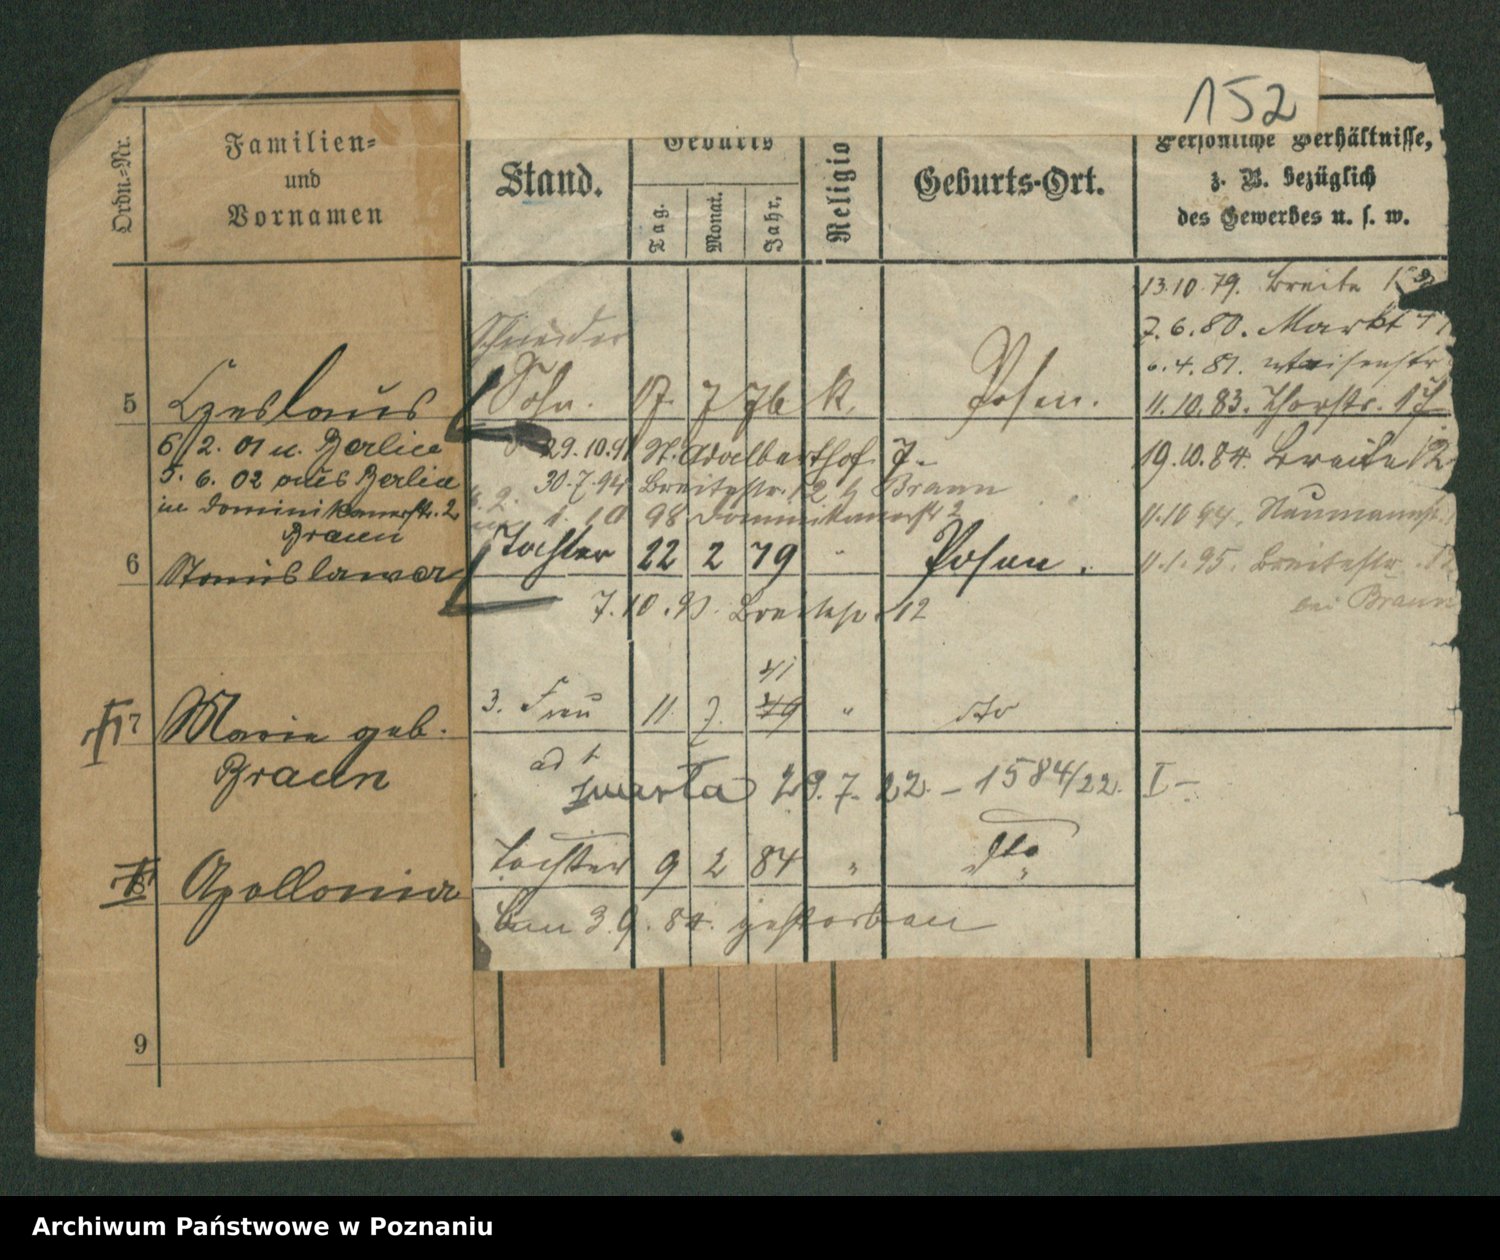 152
Ordn.-Nr.
Familien-
und
Vornamen
Stand.
Geburts
Tag.
Monat.
Jahr.
Religio
Geburts-Ort.
Persönliche Verhältnisse,
z. B. bezüglich
des Gewerbes u. s. w.
13.10.79. Breite
7.6.80. Markt
6.4.81. Waisenstr
11.10.83. Thorstr. 17
Schneider
5 Czeslaus Sohn. 17. 7 76 k. Posen.
6/2. 01 n. Berlin
29.10.91 St. Adalberthof 7.
19.10.84. Breite 12
5. 6. 02 aus Berlin
30.7.94 Breitestr. 12 b Braun
in Dominikanerstr. 2
1. 10 98 Dominikanerstr 2
11.10 94. Naumannstr.
Braun
6 Stanislawa Tochter 22 2 79 " Posen.
11.1.95. Breitestr.
bei Braun
7.10.91. Breitestr. 12
41
7 Marie geb. 3. Frau 11. 7. 49 " dto
Braun
ad 7
zmarła 29.7.22. – 1584/22. I –
8 Apollonia Tochter 9 2 84 " dto
den 3.9.84. gestorben
9
Archiwum Państwowe w Poznaniu